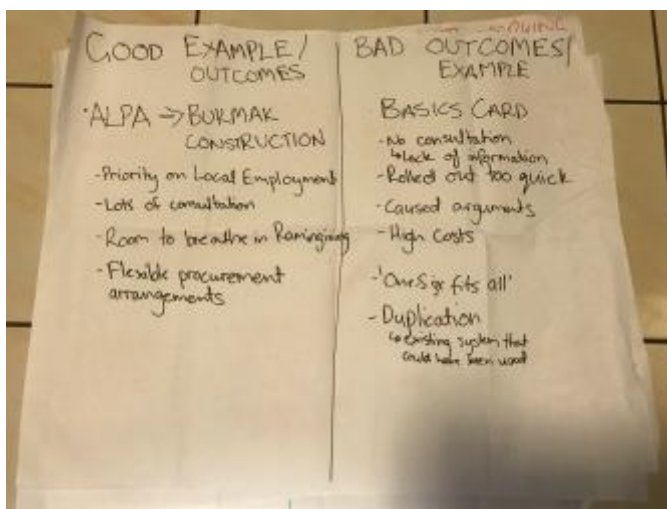 GOOD EXAMPLE/
OUTCOMES
·ALPA -> BUKMAK
CONSTRUCTION
-Priority on Local Employment
-Lots of consultation
-Room to breathe in Ramingining
-Flexible procurement
arrangements
BAD OUTCOMES/
EXAMPLE
BASICS CARD
-No consultation
↳lack of information
-Rolled out too quick
-Caused arguments
-High Costs
-'One Size fits all'
-Duplication
↳existing system that
could have been used